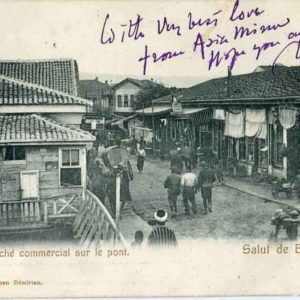 With very best love
from Asia Minor
Hope you a
ché commercial sur le pont.
Salut de B
en-Démirian.